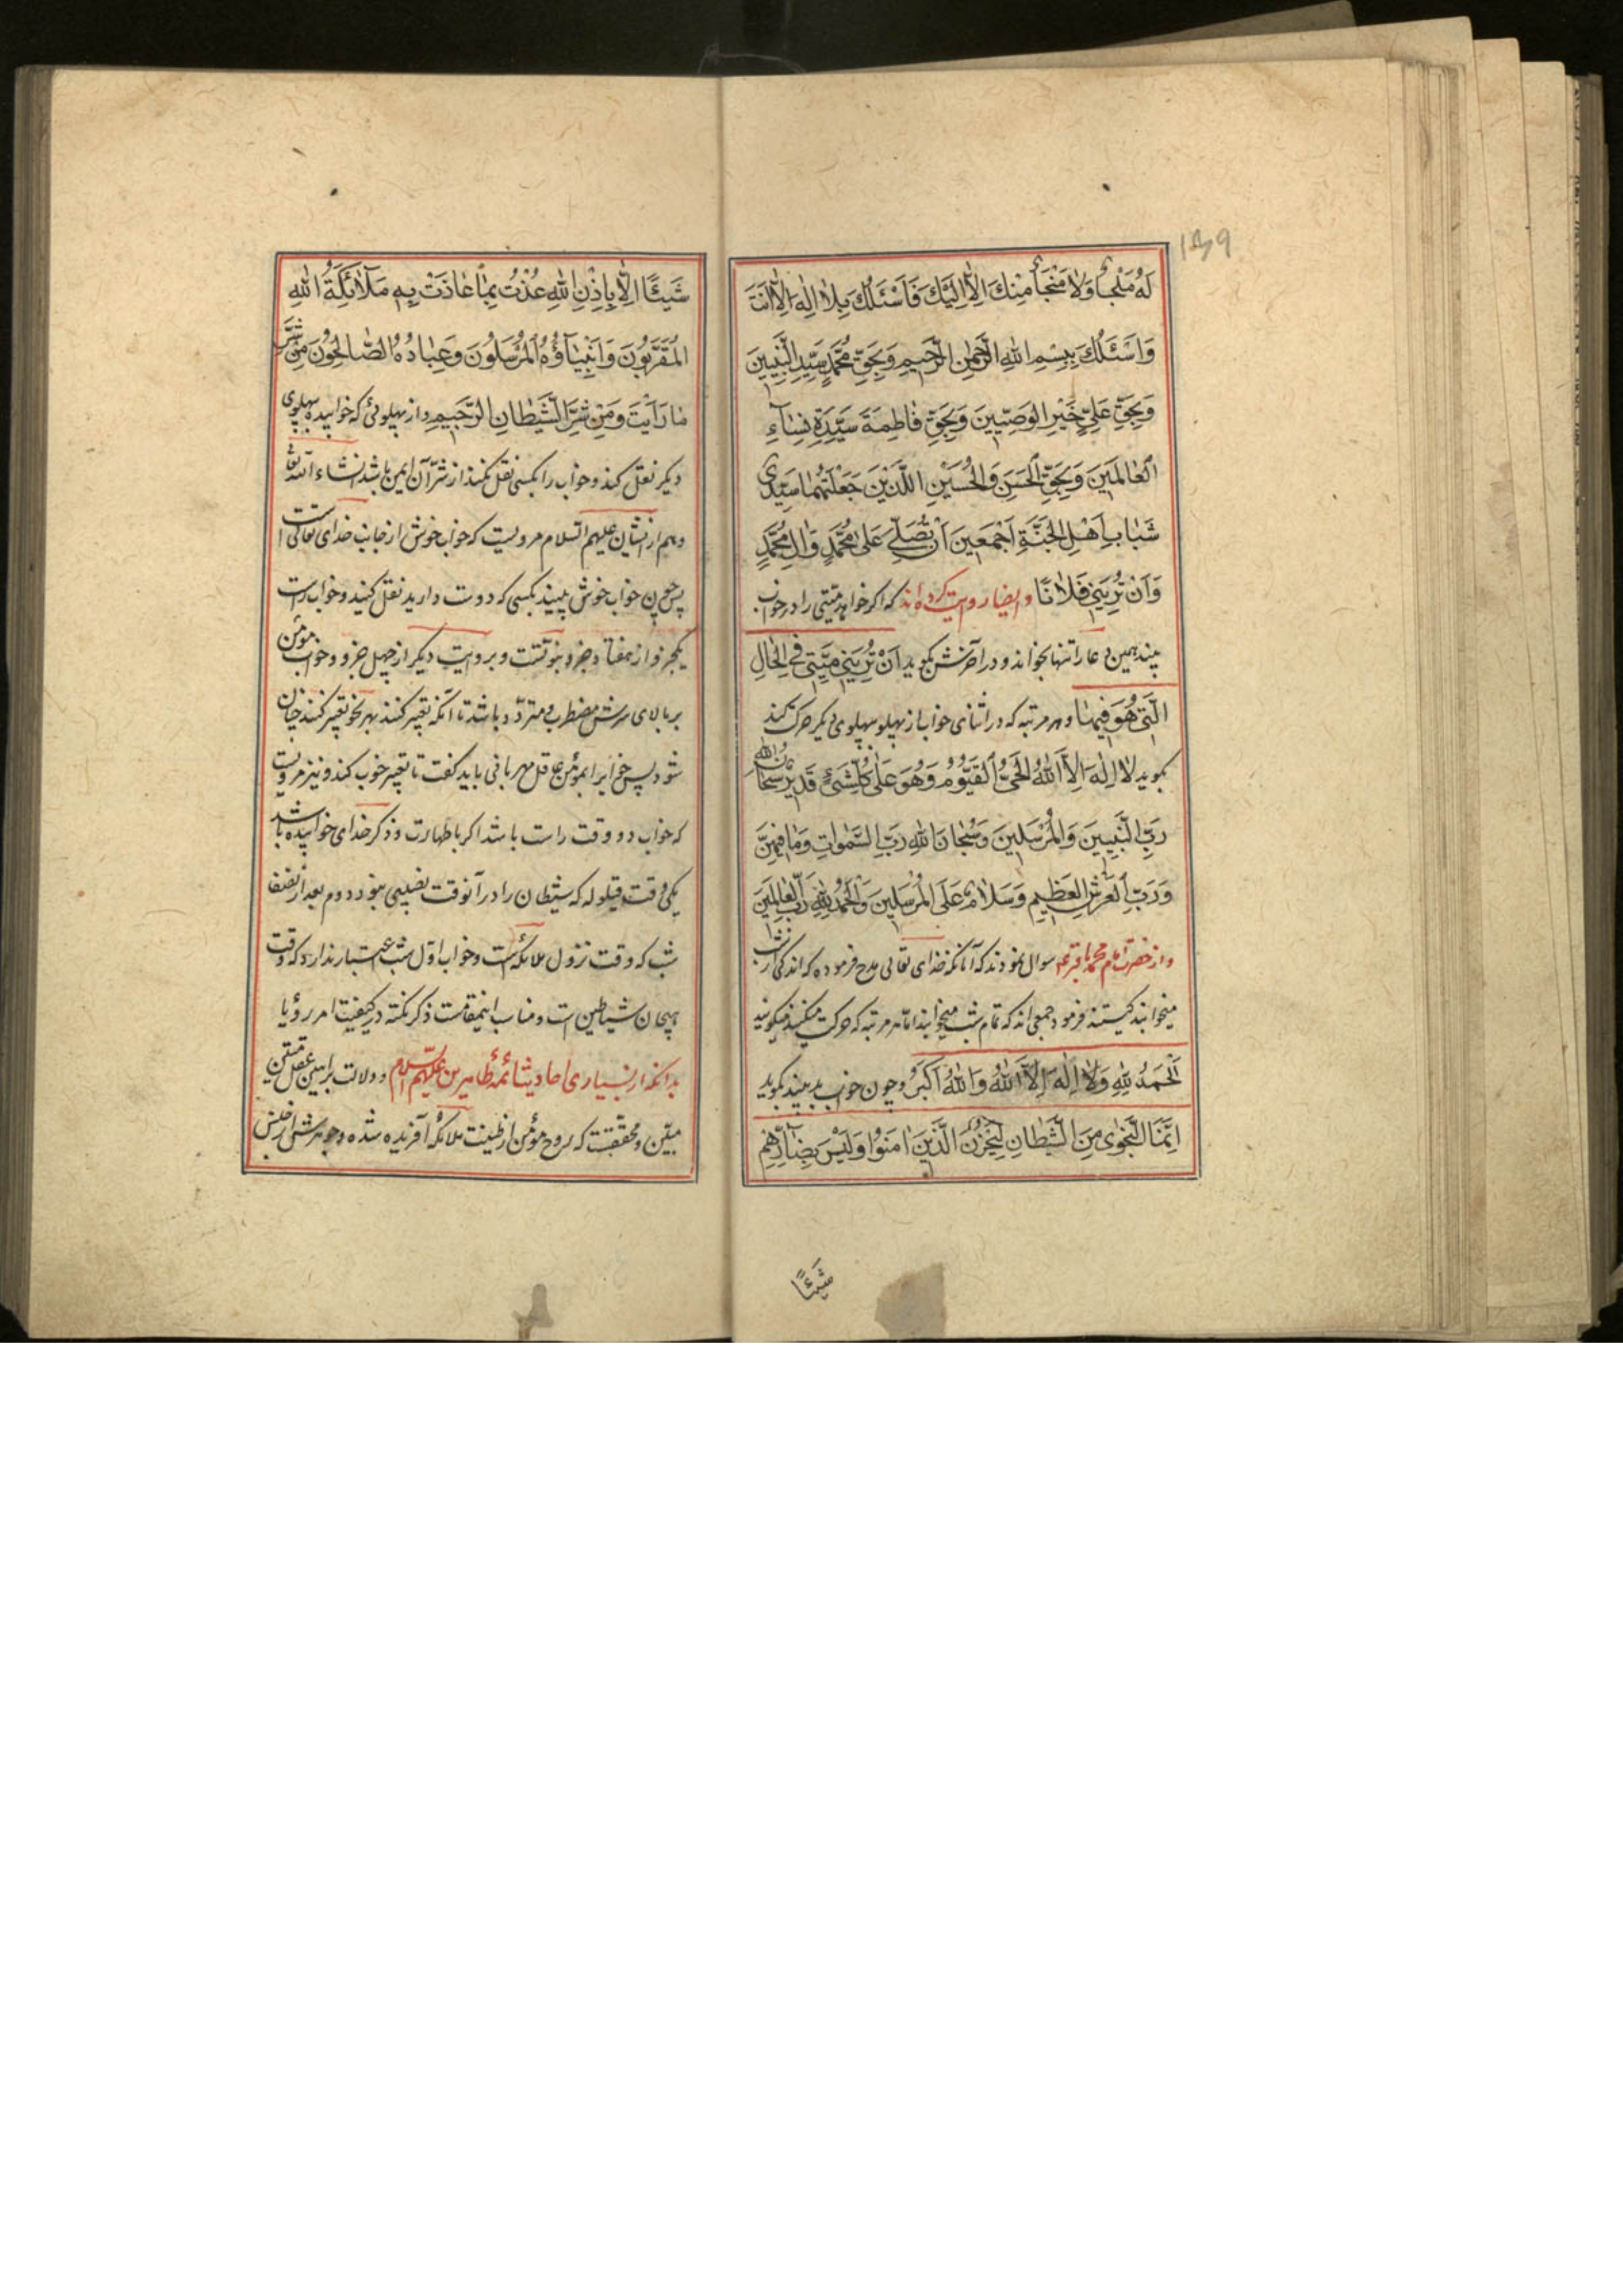 ۱۳۹
لَهُ مَلْجَأٌ وَلَا مَنْجَأٌ مِنْكَ اِلَّا اِلَيْكَ فَاَسْئَلُكَ بِلَا اِلٰهَ اِلَّا اَنْتَ
وَاَسْئَلُكَ بِبِسْمِ اللهِ الرَّحْمٰنِ الرَّحِيمِ وَبِحَقِّ مُحَمَّدٍ سَيِّدِ النَّبِيِّينَ
وَبِحَقِّ عَلِيٍّ خَيْرِ الوَصِيّينَ وَبِحَقِّ فَاطِمَةَ سَيِّدَةِ نِسَآءِ
العَالَمِينَ وَبِحَقِّ الحَسَنِ وَالحُسَيْنِ اللَّذَيْنِ جَعَلْتَهُمَا سَيِّدَيْ
شَبَابِ اَهْلِ الجَنَّةِ اَجْمَعِينَ اَنْ تُصَلِّيَ عَلىٰ مُحَمَّدٍ وَاٰلِ مُحَمَّدٍ
وَاَنْ تُرِيَنِي فُلَانًا وایضا روایت کرده‌اند که اکر خواهد میّتی را در خواب
بیند همین دعا را تنها بخواند و در آخرش بکوید اَنْ تُرِيَنِي مَيِّتِي فِي الحَالِ
الَّتِي هُوَ فِيهَا و هر مرتبه که در اثنای خواب از پهلو بپهلوی دیکر حرکت کند
بکوید لَا اِلٰهَ اِلَّا اللهُ الحَيُّ القَيُّومُ وَهُوَ عَلىٰ كُلِّ شَيْءٍ قَدِيرٌ سُبْحَانَ اللهِ
رَبِّ النَّبِيِّينَ وَالمُرْسَلِينَ وَسُبْحَانَ اللهِ رَبِّ السَّمٰوَاتِ وَمَا فِيهِنَّ
وَرَبِّ العَرْشِ العَظِيمِ وَسَلَامٌ عَلَى المُرْسَلِينَ وَالحَمْدُ لِلّٰهِ رَبِّ العَالَمِينَ
و از حضرت امام محمد باقر ع سوال نمودند که آنانکه خدای تعالی مدح فرموده که اندکی از شب
میخوابند کیستند فرمود جمعی‌اند که تمام شب میخوابند اما هر مرتبه که حرکت میکنند میکویند
اَلحَمْدُ لِلّٰهِ وَلَا اِلٰهَ اِلَّا اللهُ وَاللهُ اَكْبَرُ و چون خواب بد بیند بکوید
اِنَّمَا النَّجْوٰى مِنَ الشَّيْطَانِ لِيَحْزُنَ الَّذِينَ اٰمَنُوا وَلَيْسَ بِضَآرِّهِمْ
شَيْئًا
شَيْئًا اِلَّا بِاِذْنِ اللهِ عُذْتُ بِمَا عَاذَتْ بِهِ مَلَآئِكَةُ اللهِ
المُقَرَّبُونَ وَاَنْبِيَآؤُهُ المُرْسَلُونَ وَعِبَادُهُ الصَّالِحُونَ مِنْ شَرِّ
مَا رَاَيْتُ وَمِنْ شَرِّ الشَّيْطَانِ الرَّجِيمِ و از پهلوئی که خوابیده بپهلوی
دیکر نقل کند و خواب را بکسی نقل نکند از شرّ آن ایمن باشد انشاء الله تعا
و هم از ایشان علیهم السلام مرویست که خواب خوش از جانب خدای تعالی است
پس چون خواب خوش ببینید بکسی که دوست دارید نقل کنید و خواب راست
یکجزو از هفتاد جزو نبوتست و بروایت دیکر از چهل جزو و خواب مؤمن
بر بالای سرش مضطرب و متردّد باشد تا آنکه تعبیر کنند بهر نحو تعبیر کنند چنان
شود پس خوابرا بمؤمن عاقل مهربانی باید کفت تا تعبیر خوب کند و نیز مرویست
که خواب دو وقت راست باشد اکر با طهارت و ذکر خدای خوابیده باشد
یکی وقت قیلوله که شیطان را در آنوقت نصیبی نبود دوم بعد از نصف
شب که وقت نزول ملائکه است و خواب اوّل شب اعتبار ندارد که وقت
هیجان شیاطین است و مناسب اینمقامست ذکر نکته در کیفیت امر رؤیا
بدانکه از بسیاری احادیث ائمهٔ طاهرین علیهم السلام و دلالت براهین عقل متقن
مبیّن و محققست که روح مؤمن از طینت ملائکه آفریده شده و جوهرش از جنس